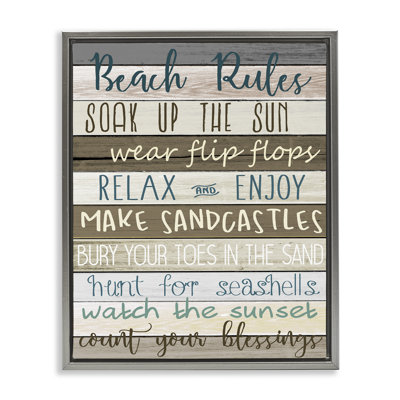 Beach Rules
SOAK UP THE SUN
wear flip flops
RELAX AND ENJOY
MAKE SANDCASTLES
BURY YOUR TOES IN THE SAND
hunt for seashells
watch the sunset
count your blessings